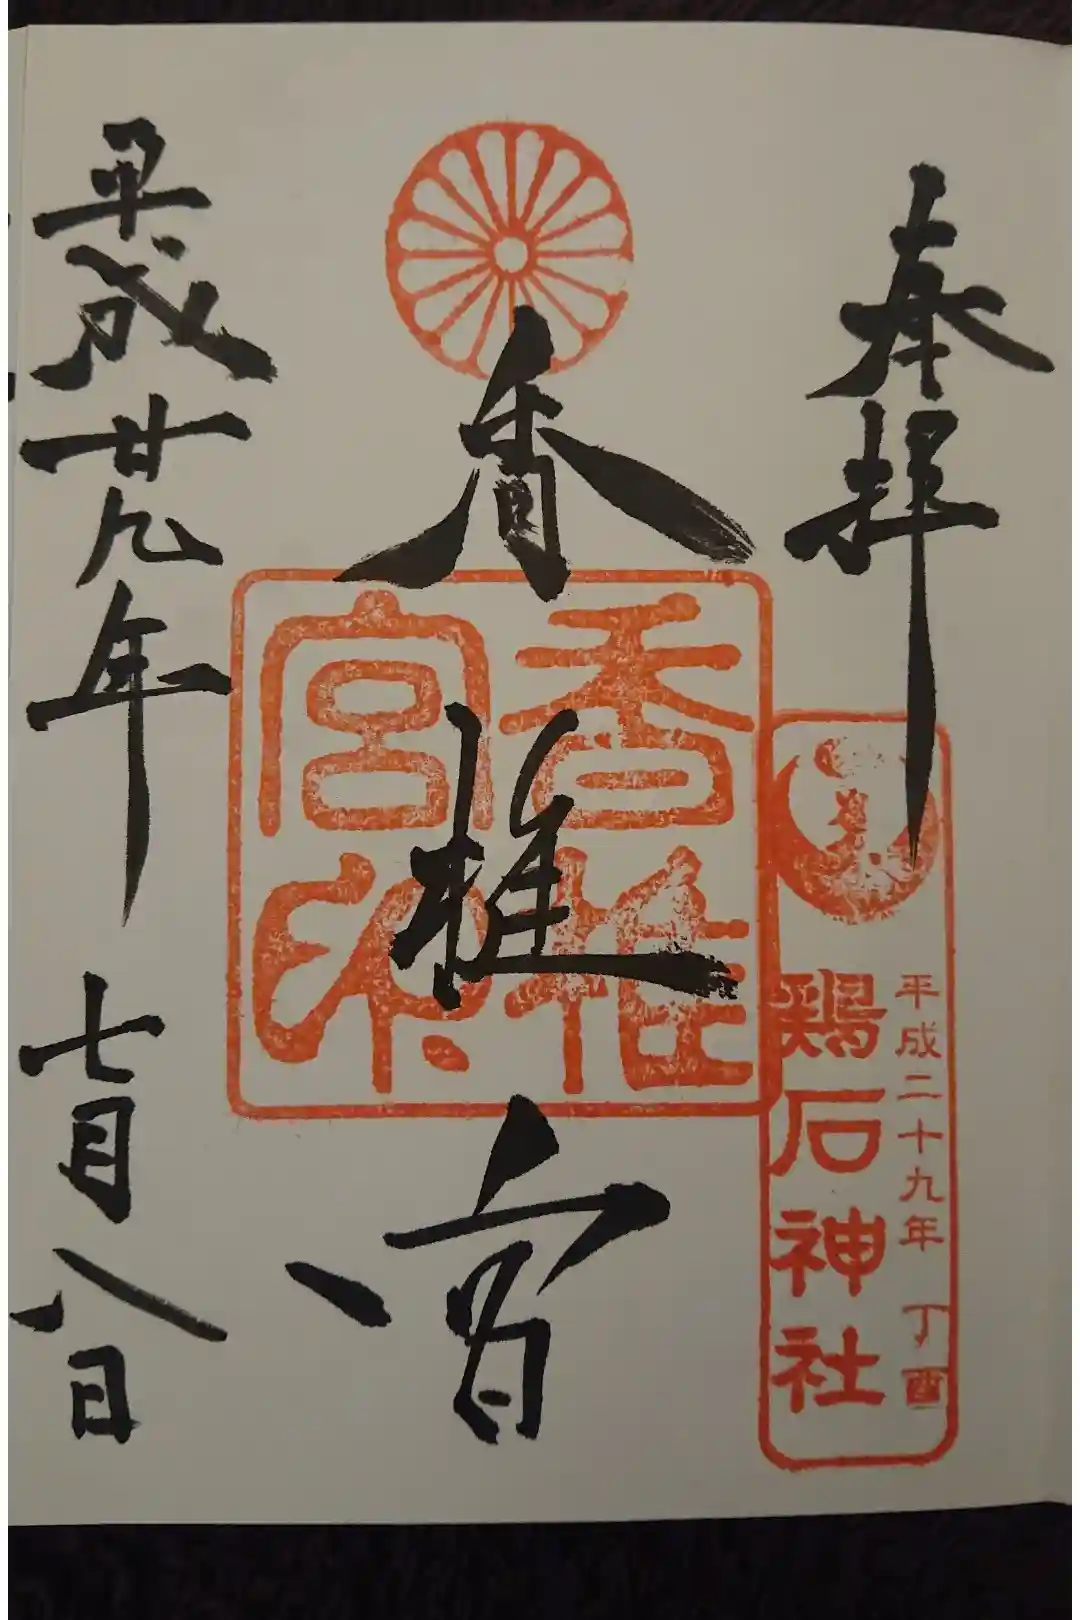 奉拝
平成二十九年 丁酉
鶏石神社
香椎宮
香椎
宮印
平成廿九年 七月八日